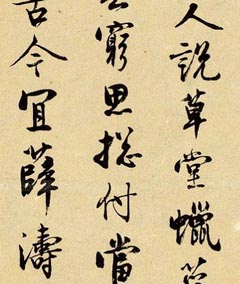 人説草堂蠟
窮思揔付當
古今宜薛濤